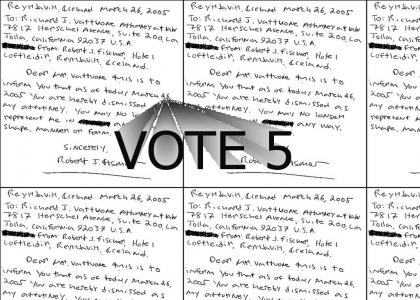 Reykjavik, Iceland March 26, 2005
To: Richard J. Vattuone Attorney at law
7817 Herschel Avenue, Suite 200, La
Jolla, California 92037 U.S.A.
From Robert J. Fischer, Hotel
Loftleidir, Reykjavik, Iceland.
Dear Mr. Vattuone this is to
inform you that as of today March 26,
2005 You are hereby dismissed as
my attorney. You may no longer
represent me in any way,
shape, manner or form.
Sincerely,
Robert J. Fischer
Reykjavik, Iceland March 26, 2005
To: Richard J. Vattuone Attorney at law
7817 Herschel Avenue, Suite 200, La
Jolla, California 92037 U.S.A.
From Robert J. Fischer, Hotel
Loftleidir, Reykjavik, Iceland.
Dear Mr. Vattuone this is to
inform you that as of today March 26,
2005 You are hereby dismissed as
my attorney. You may no longer
represent me in any way,
shape, manner or form.
VOTE 5
Reykjavik, Iceland March 26, 2005
To: Richard J. Vattuone Attorney at law
7817 Herschel Avenue, Suite 200, La
Jolla, California 92037 U.S.A.
From Robert J. Fischer, Hotel
Loftleidir, Reykjavik, Iceland.
Dear Mr. Vattuone this is to
inform you that as of today March 26,
2005 You are hereby dismissed as
Reykjavik, Iceland March 26, 2005
To: Richard J. Vattuone Attorney at law
7817 Herschel Avenue, Suite 200, La
Jolla, California 92037 U.S.A.
From Robert J. Fischer, Hotel
Loftleidir, Reykjavik, Iceland.
Dear Mr. Vattuone this is to
inform you that as of today March 26,
2005 You are hereby dismissed as